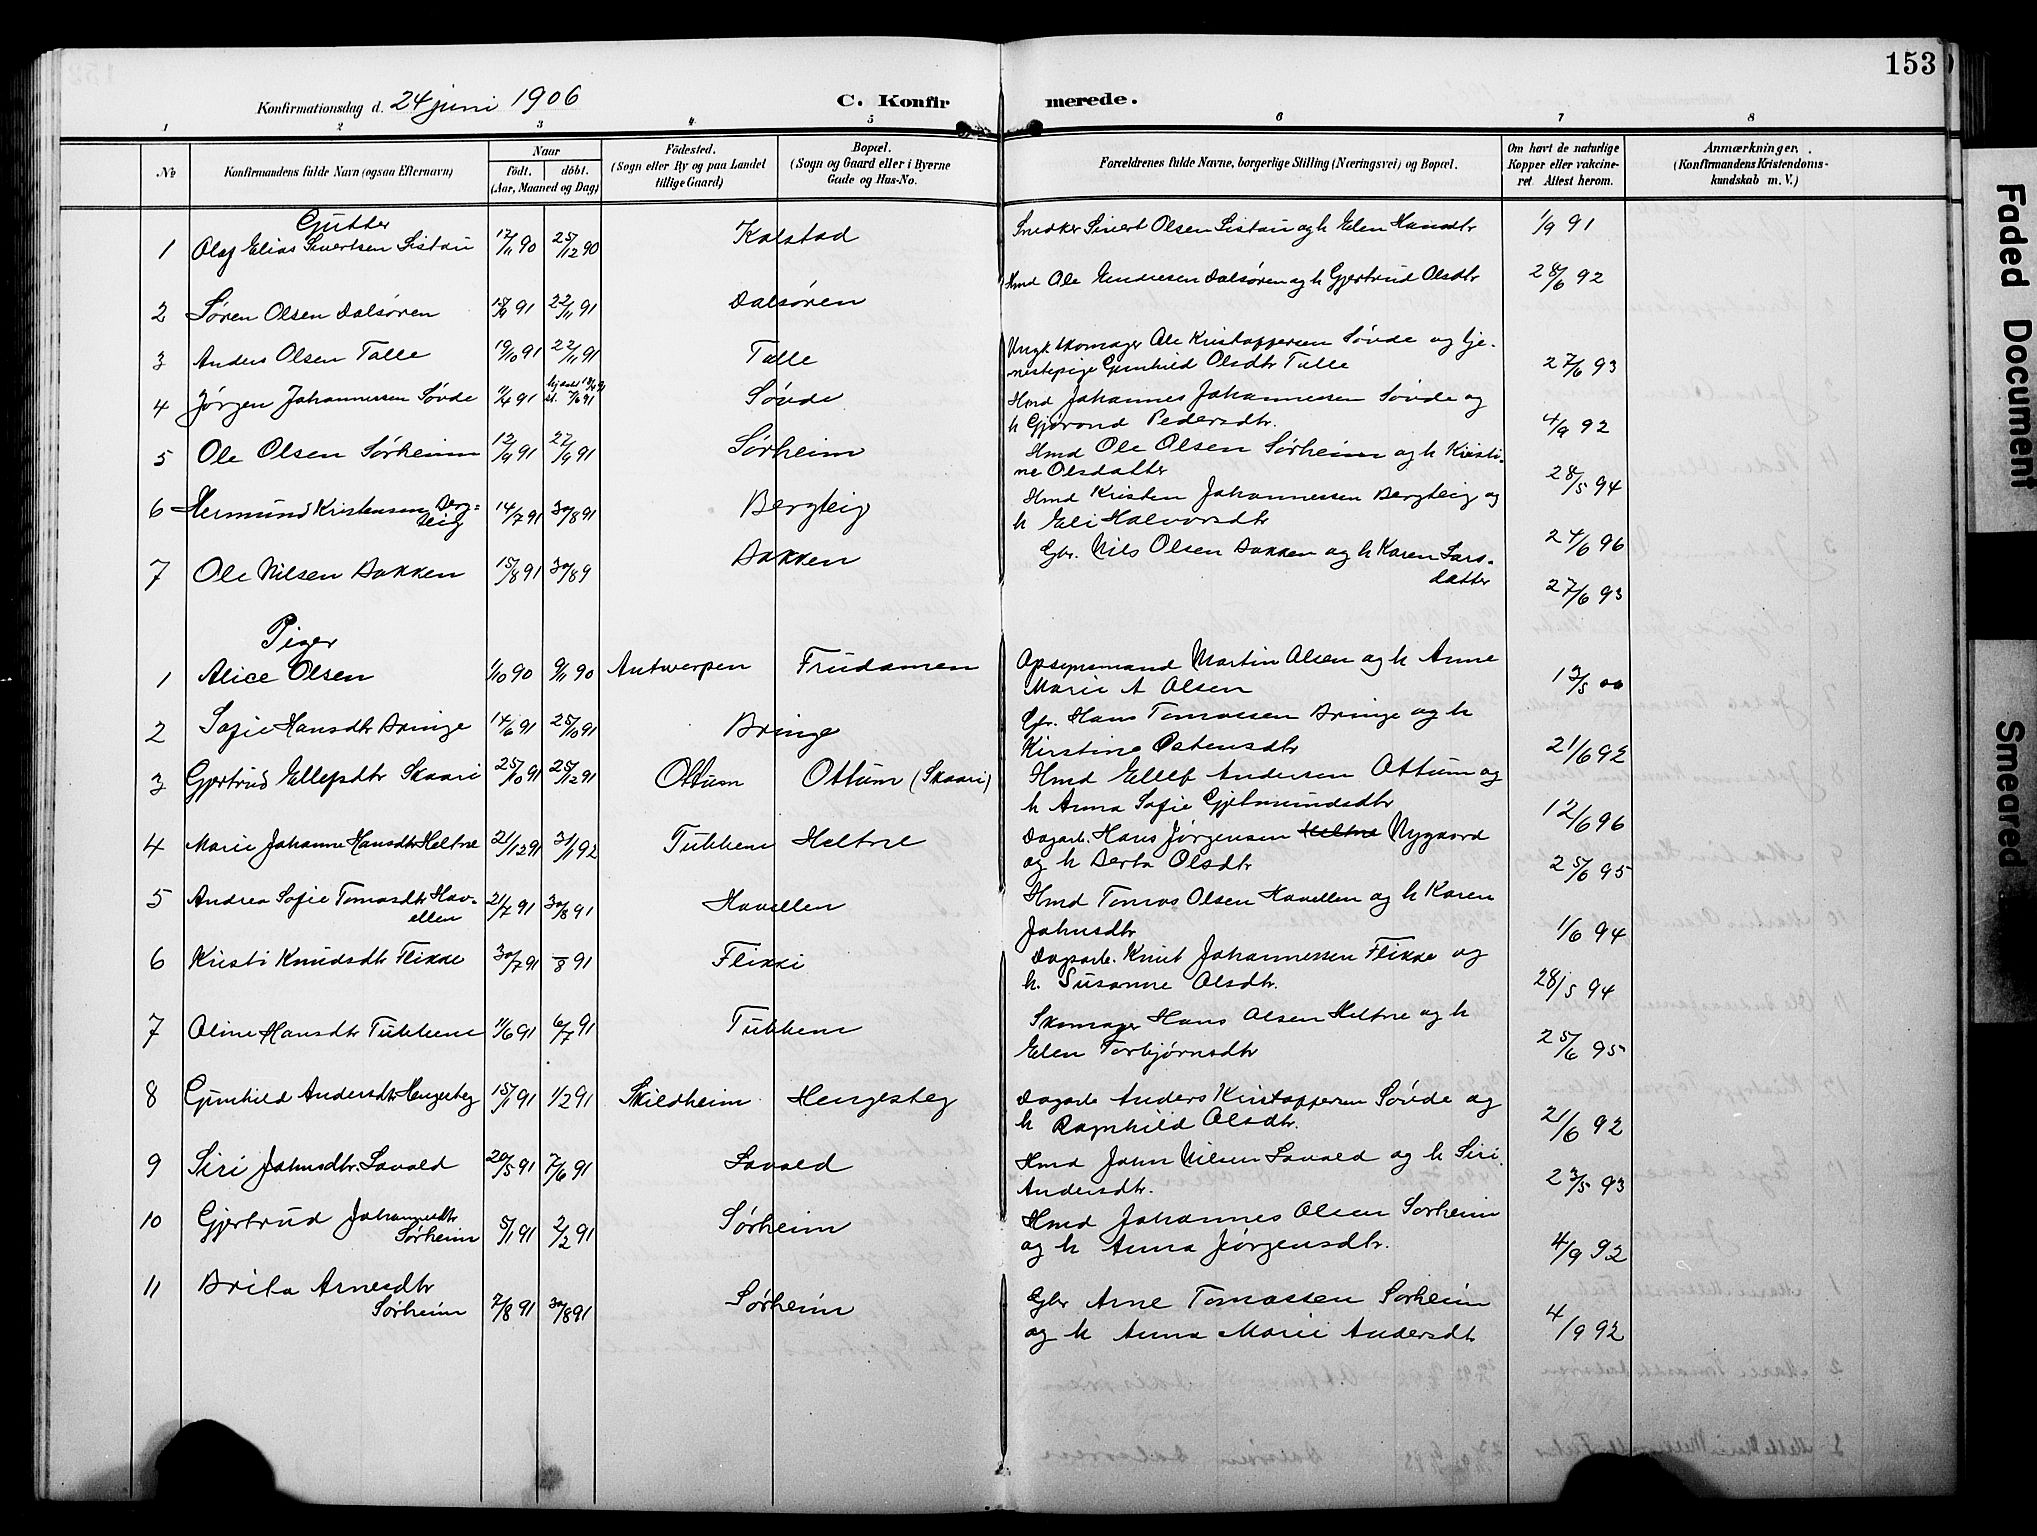 153
Konfirmationsdag d. 24 juni 1906
C. Konfirmerede.
1 2 3 4 5 6 7 8
No
Konfirmandens fulde Navn (ogsaa Efternavn)
Naar
födt. döbt.
(Aar, Maaned og Dag)
Födested.
(Sogn eller By og paa Landet
tillige Gaard)
Bopæl.
(Sogn og Gaard eller i Byerne
Gade og Hus-No.
Forældrenes fulde Navne, borgerlige Stilling (Næringsvei) og Bopæl.
Om havt de naturlige
Kopper eller vakcine-
ret Attest herom.
Anmærkninger.
(Konfirmandens Kristendoms-
kundskab m. V.)
Gutter
1 Olaf Elias Sivertsen Sistau 12/11 90 25/12 90 Kalstad Snedker Sivert Olsen Sistau og h Elen Hansdtr 1/9 91
2 Søren Olsen Dalsøren 15/9 91 22/11 91 Dalsøren Hmd Ole Endresen Dalsøren og h Gjertrud Olsdtr 28/6 92
3 Anders Olsen Talle 19/10 91 22/11 91 Talle Ungk. skomager Ole Kristoffersen Søvde og tje-
nestepige Gunhild Olsdtr Talle 27/6 93
4 Jørgen Johannessen Søvde 11/4 91 Søvde Hmd Johannes Johannessen Søvde og
h Gjørond Pedersdtr. 4/9 92
5 Ole Olsen Sørheim 12/9 91 27/9 91 Sørheim Hmd Ole Olsen Sørheim og h Kristi-
ne Olsdatter 28/5 94
6 Hermund Kristensen Berg-
teig 14/7 91 30/8 91 Bergteig Hmd Kristen Johannessen Bergteig og
h Eli Halvorsdtr 24/6 96
7 Ole Nilsen Bakken 15/8 91 30/8 9 Bakken Gbr. Nils Olsen Bakken og h Karen Lars-
datter 27/6 93
Piger
1 Alice Olsen 1/10 90 9/11 90 Antwerpen Frudamen Opsynsmand Martin Olsen og h Anne
Marie A Olsen 12/5 00
2 Sofie Hansdtr Bringe 14/6 91 25/10 91 Bringe Gbr. Hans Tomassen Bringe og h
Kirstine Ostensdtr 21/6 92
3 Gjertrud Ellefsdtr Skaari 25/10 91 25/12 91 Ottum Ottum (Skaari) Hmd Ellef Andersen Ottum og
h Anna Sofie Gjelmundsdtr 12/6 96
4 Marie Johanne Hansdtr Heltne 21/12 91 31/1 92 Tubbene Heltne Dagarb. Hans Jørgensen Heltne Nygaard
og h Berta Olsdtr 25/6 95
5 Andrea Sofie Tomasdtr Hav-
ellen 21/7 91 30/8 91 Havellen Hmd Tomas Olsen Havellen og h Karen
Johnsdtr 1/6 94
6 Kristi Knudsdtr Flikke 30/7 91 –/8 91 Flikki Dagarb. Knut Johannessen Flikke og
h. Susanne Olsdtr. 28/5 94
7 Oline Hansdtr Tubbene 11/6 91 6/7 91 Tubbene Skomager Hans Olsen Heltne og h
Elen Torbjørnsdtr 25/6 95
8 Gunhild Andersdtr Hengesteg 15/1 91 1/2 91 Skildheim Hengesteg Dagarb Anders Kristoffersen Søvde og
h Ragnhild Olsdtr. 21/6 92
9 Siri Johnsdtr. Lavold 20/5 91 7/6 91 Lavold Hmd John Nilsen Lavold og h Siri
Andersdtr. 23/5 93
10 Gjertrud Johannesdtr
Sørheim 5/1 91 2/2 91 Sørheim Hmd Johannes Olsen Sørheim
og h Anna Jørgensdtr. 4/9 92
11 Brita Arnesdtr
Sørheim 7/8 91 30/8 91 Sørheim Gbr Arne Tomassen Sørheim
og h Anna Marie Andersdtr 4/9 92
Faded Document
Smeared